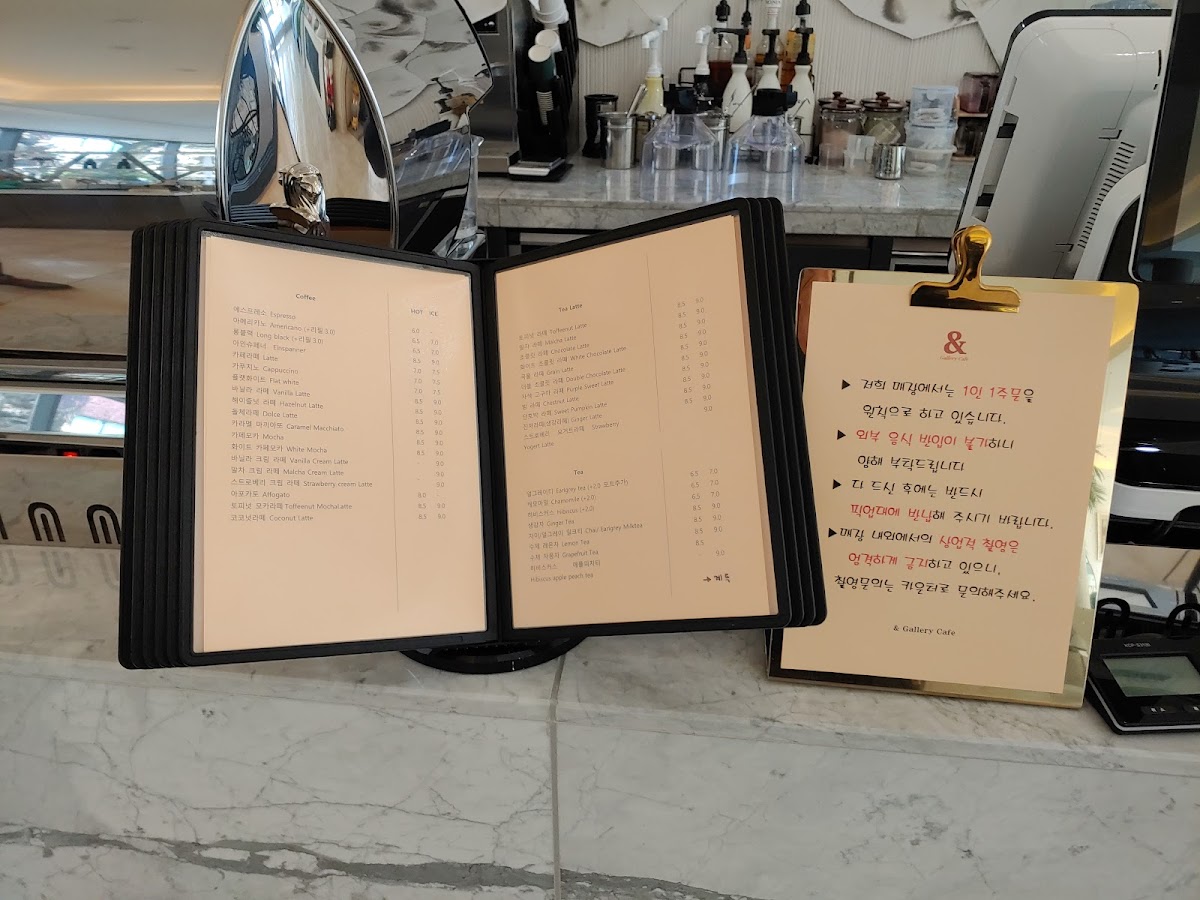 Coffee
HOT ICE
에스프레소 Espresso 6.0 -
아메리카노 Americano (+리필3.0) 6.5 7.0
롱블랙 Long black (+리필3.0) 6.5 7.0
아인슈페너 Einspanner
카페라떼 Latte
카푸치노 Cappuccini
플랫화이트 Flat white
바닐라 라떼 Vanilla Latte
헤이즐넛 라떼 Hazelnut Latte
돌체라떼 Dolce Latte
카라멜 마끼아또 Caramel Macchiato
카페모카 Mocha
화이트 카페모카 White Mocha
바닐라 크림 라떼 Vanilla Cream Latte - 9.0
말차 크림 라떼 Matcha Cream Latte - 9.0
스트로베리 크림 라떼 Strawberry cream Latte - 9.0
아포가토 Affogato 8.0 -
토피넛 모카라떼 Toffeenut Mochalatte 8.5 9.0
코코넛라떼 Coconut Latte 8.5 9.0
Tea Latte
토피넛 라떼 Toffeenut Latte 8.5 9.0
말차 라떼 Matcha Latte 8.5 9.0
초콜릿 라떼 Chocolate Latte 8.5 9.0
화이트 초콜릿 라떼 White Chocolate Latte 8.5 9.0
곡물 라떼 Grain Latte 8.5 9.0
더블 초콜릿 라떼 Double Chocolate Latte 8.5 9.0
자색 고구마 라떼 Purple Sweet Latte 8.5 9.0
밤 라떼 Chestnut Latte 8.5 9.0
단호박 라떼 Sweet Pumpkin Latte 8.5 9.0
진저라떼(생강라떼) Ginger Latte 8.5 9.0
스트로베리 요거트라떼 Strawberry 9.0
Yogurt Latte
Tea
얼그레이티 Earlgrey tea (+2.0 요트추가) 6.5 7.0
캐모마일 Chamomile (+2.0) 6.5 7.0
히비스커스 Hibiscus (+2.0) 6.5 7.0
생강차 Ginger Tea 8.5 9.0
차이/얼그레이 밀크티 Chai/ Earlgrey Milktea 8.5 9.0
수제 레몬차 Lemon Tea 8.5 9.0
수제 자몽차 Grapefruit Tea 8.5
히비스커스 애플피치티 - 9.0
Hibiscus apple peach tea
→계속
&
Gallery Cafe
▶ 저희 매장에서는 1인 1주문을
원칙으로 하고 있습니다.
▶ 외부 음식 반입이 불가하니
양해 부탁드립니다
▶ 다 드신 후에는 반드시
픽업대에 반납해 주시기 바랍니다.
▶매장 내외에서의 상업적 촬영은
엄격하게 금지하고 있으니,
촬영문의는 카운터로 문의해주세요.
& Gallery Cafe